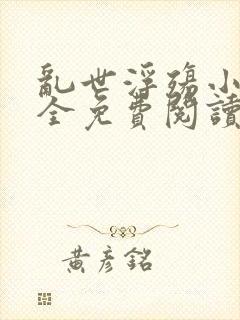 亂世浮殤小
全免費閱讀
黃彥銘